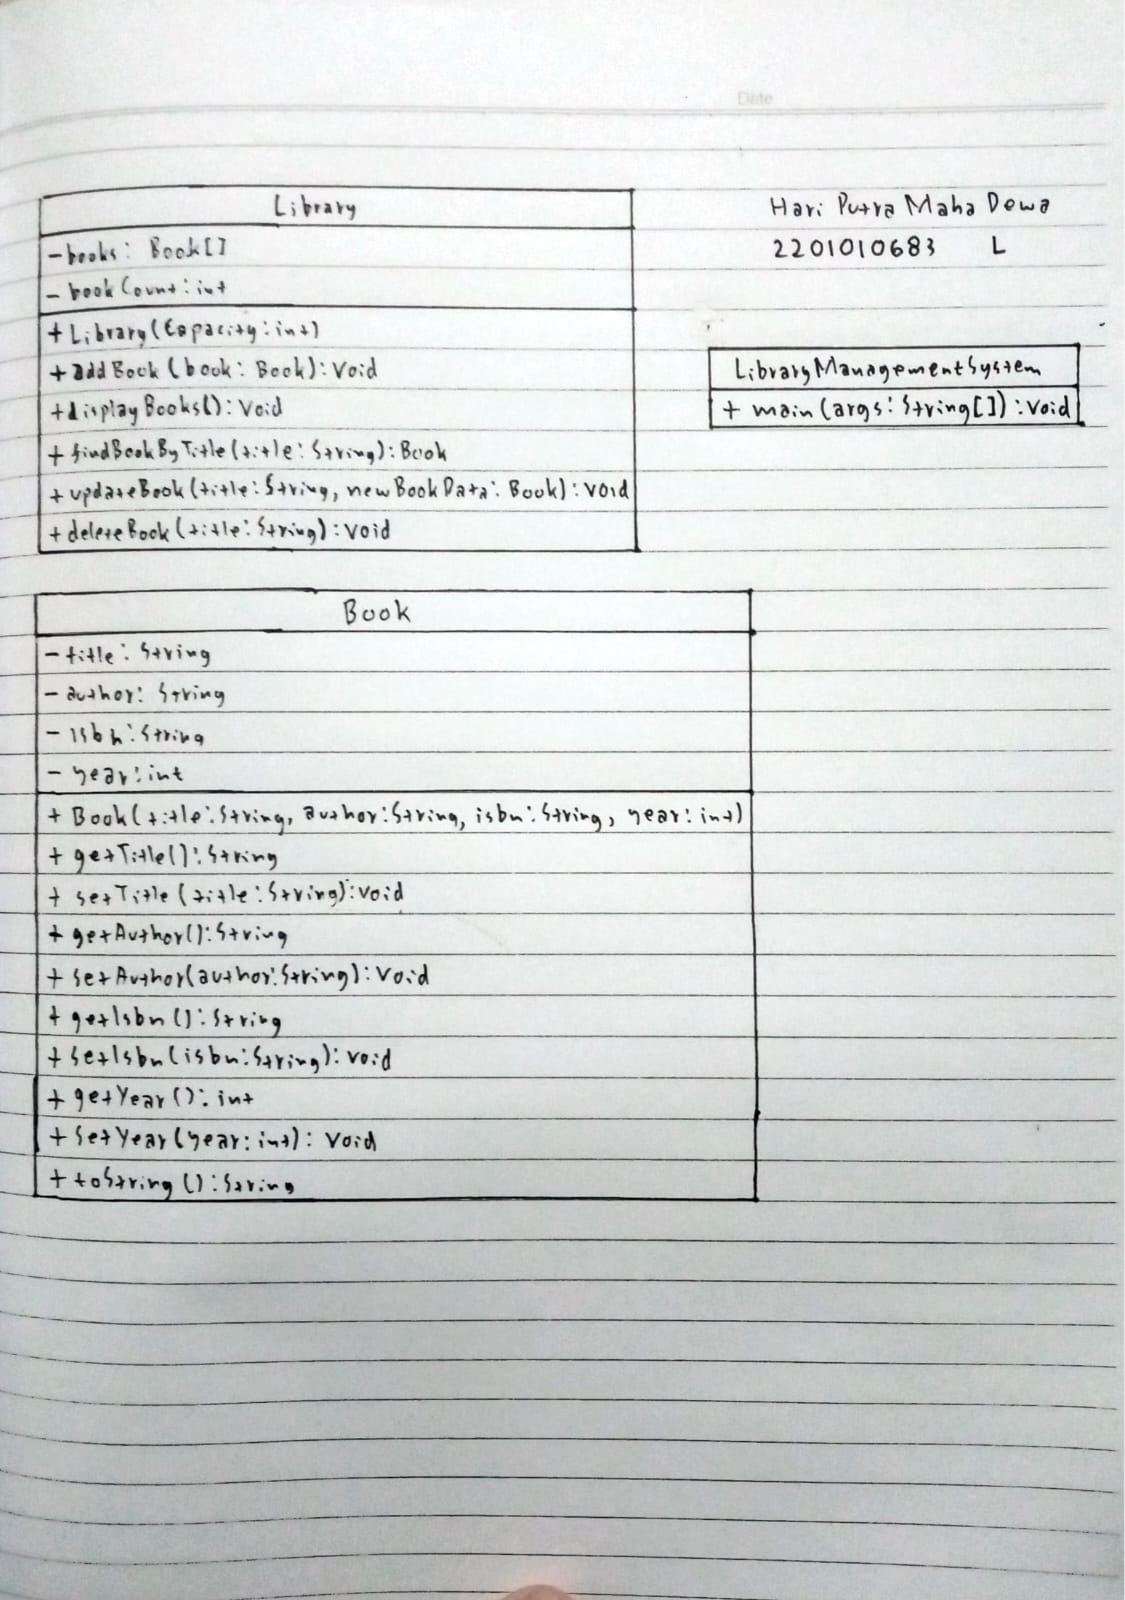 Date
Hari Putra Maha Dewa
2201010683 L
Library
- books: Book[]
- bookCount: int
+ Library(Capacity: int)
+ addBook (book: Book): Void
+ displayBooks(): Void
+ findBookByTitle(title: String): Book
+ updateBook(title: String, newBookData: Book): void
+ deleteBook(title: String): void
LibraryManagementSystem
+ main(args: String[]): void
Book
- title: String
- author: String
- isbn: String
- year: int
+ Book(title: String, author: String, isbn: String, year: int)
+ getTitle(): String
+ setTitle (title: String): void
+ getAuthor(): String
+ setAuthor(author: String): Void
+ getIsbn(): String
+ setIsbn(isbn: String): void
+ getYear(): int
+ setYear(year: int): Void
+ toString(): String